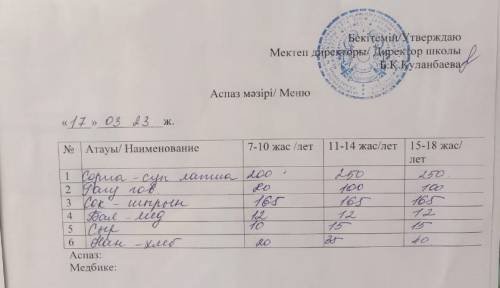 Бекітемін/Утверждаю
Мектеп директоры/ Директор школы
Б.Қ.Құланбаева
Аспаз мәзірі/ Меню
«17» 03 23 ж.
№ Атауы/ Наименование 7-10 жас /лет 11-14 жас/лет 15-18 жас/ лет
1 Сорпа - суп лапша 200 250 250
2 Рагу гов 80 100 100
3 Сок - шырын 165 165 165
4 Бал - мед 12 12 12
5 Сыр 10 15 15
6 Нан - хлеб 20 35 40
Аспаз:
Медбике: